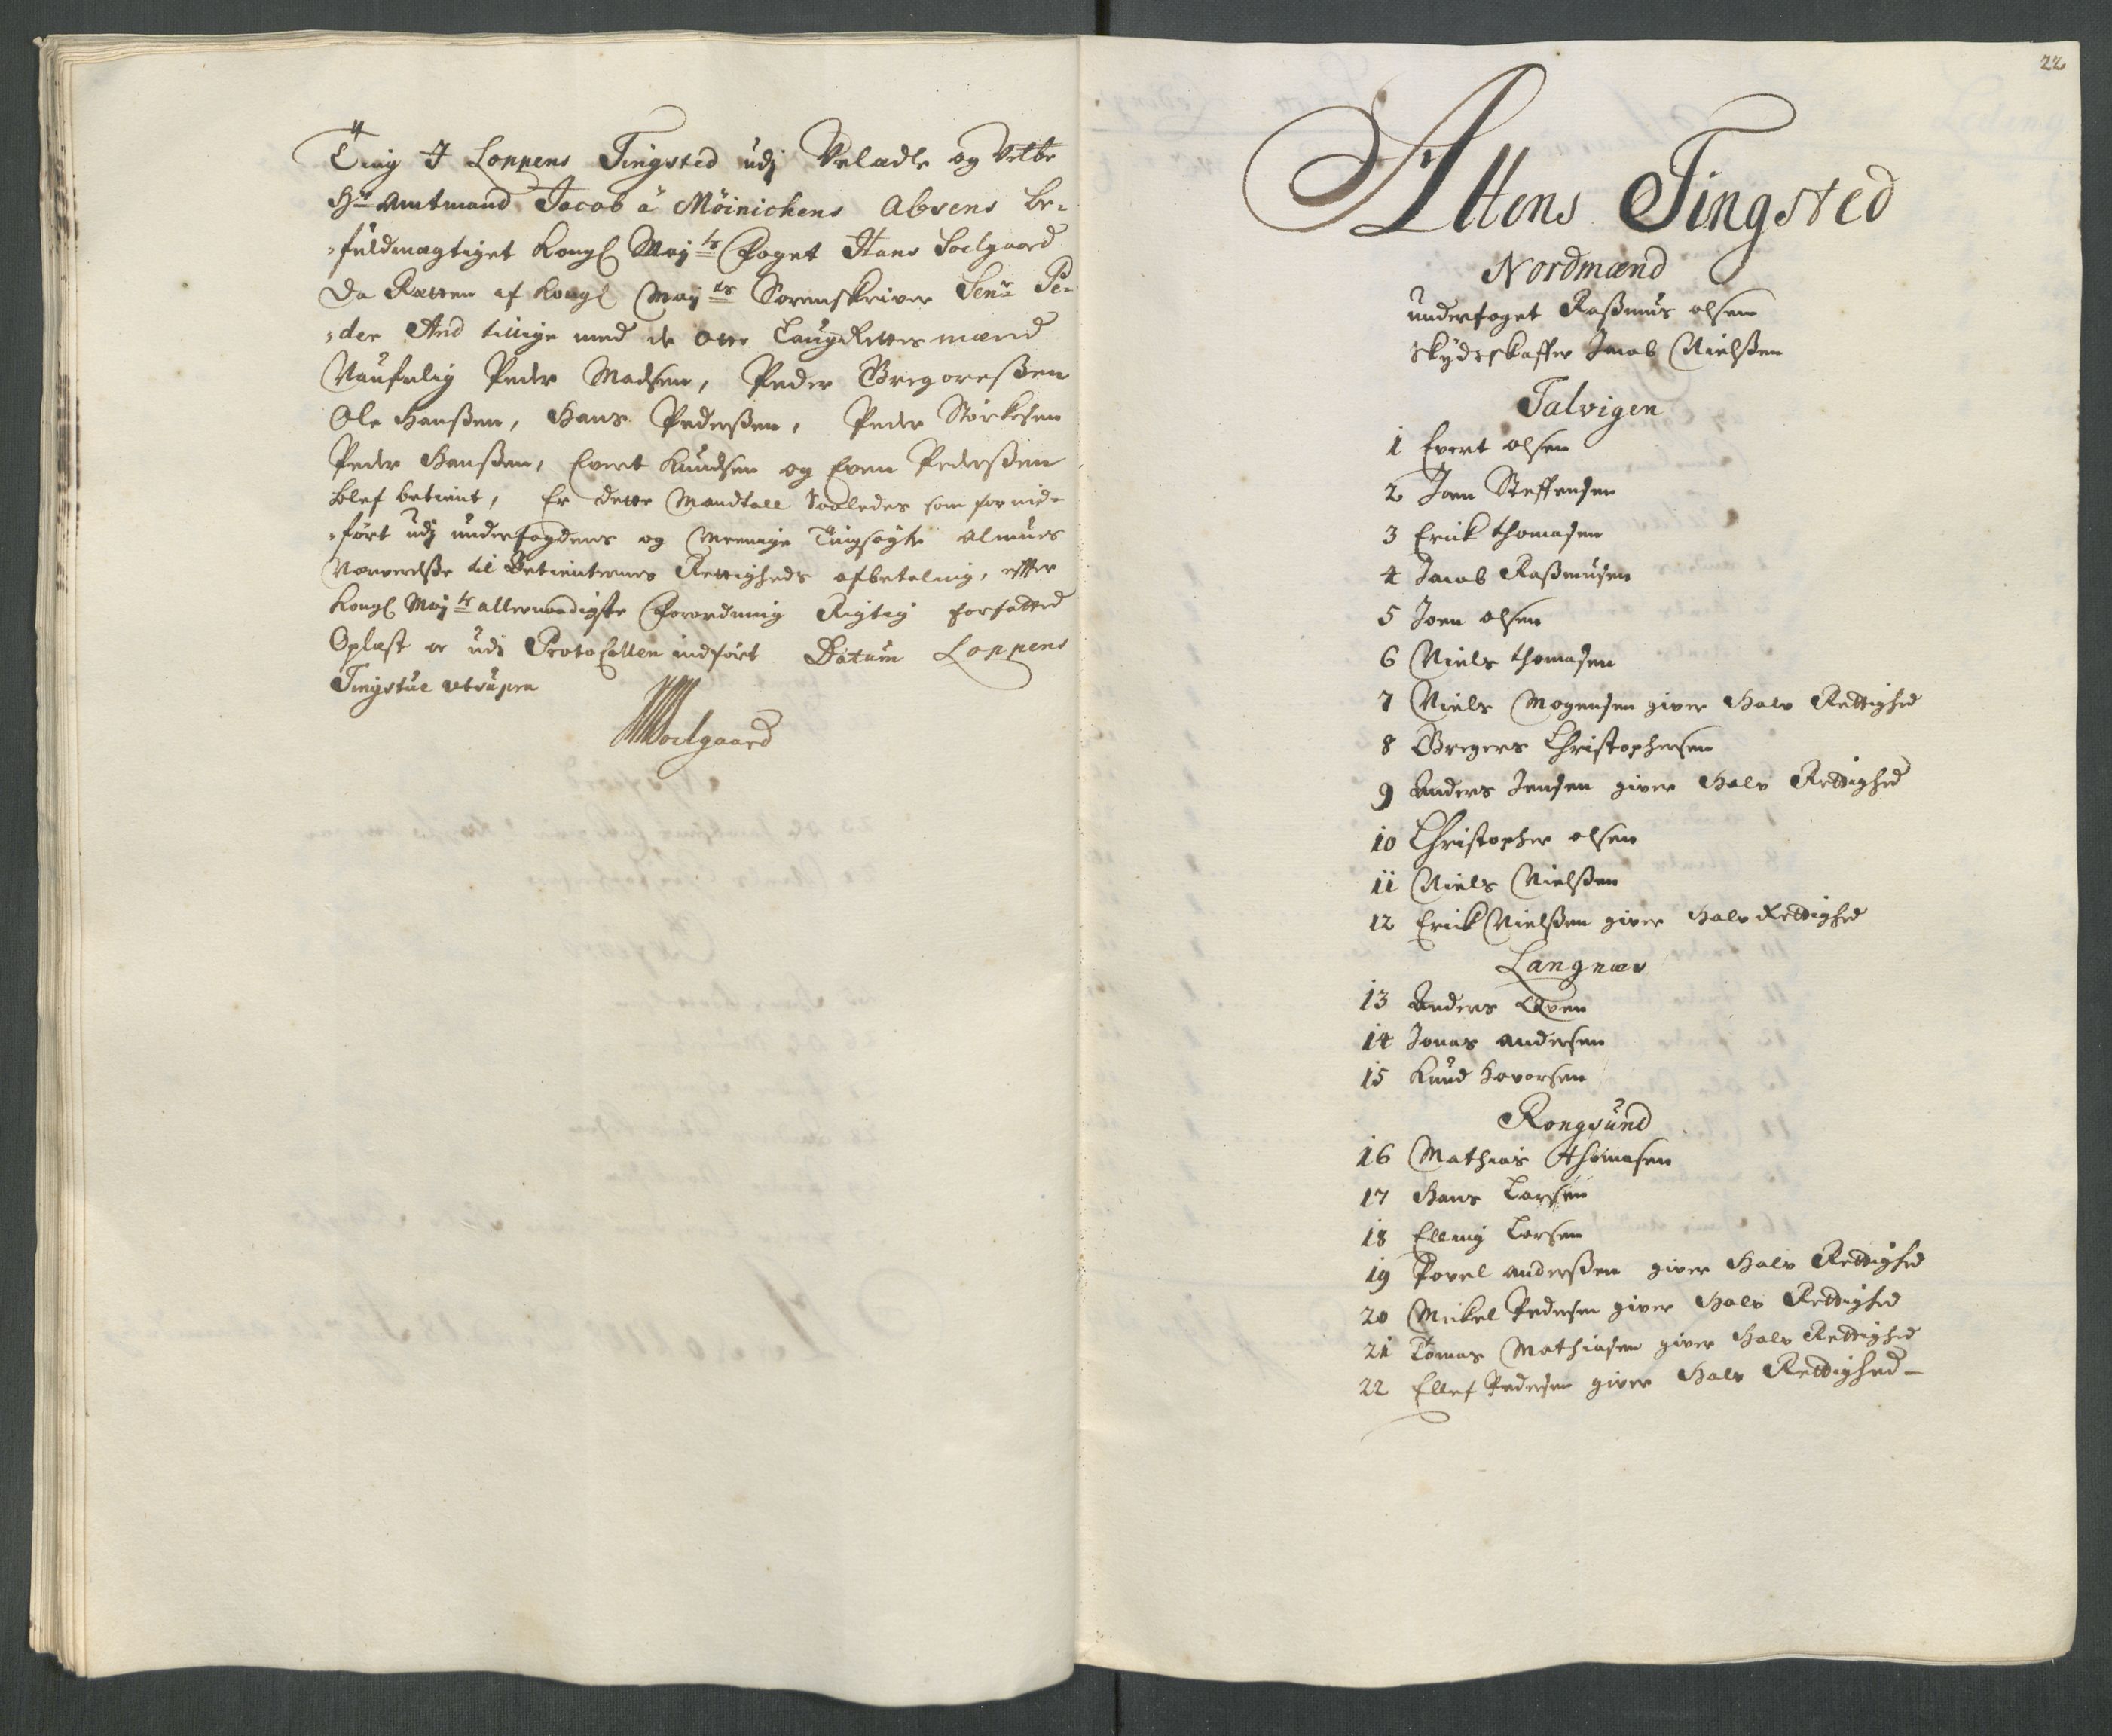 Ting I Loppens Tingsted udj Velædle og Velbr
Hr Amtmand Jacob á Möinichens Absens be-
-fuldmægtiget Kongl Maytz Foget Hans Soelgaard
Da Retten af Kongl Maytz Sorenskriver Senr Pe-
-der And tillige med de otte LaugRettes mænd
Naufnlig Peder Madsen, Peder Gregoreßen
Ole Hanßen, Hans Pederßen, Peder Störkesen
Peder Hanßen, Evert Knudsen og Even Pederßen
blef betient, Er dette Mandtall Saaledes som for ind-
-fört udj underfogdens og Meenige Tingsøgte Almues
Nærverelße til Betienternes Rettigheds afbetaling, effter
Kongl Maytz allernaadigste Forordning Rigtig forfatted
Oplæst oc udi Protocollen indfört Datum Loppens
Tingstue utsupra
HSoelgaard
22
Altens Tingsted
Nordmænd
underfoget Raßmus olsen
Skydsskaffer Jacob Nielßen
Talvigen
1 Evert olsen
2 Joen Steffensen
3 Erick thomasen
4 Jacob Raßmusen
5 Joen olsen
6 Niels thomasen
7 Niels Mogensen giver Halv Rettighed
8 Gregers Christophersen
9 Anders Jensen giver Halv Rettighed
10 Christopher olsen
11 Niels Nielßen
12 Erick Nielßen giver Halv Rettighed
Langnæs
13 Anders Qven
14 Jonas andersen
15 Knud Haversen
Rongsund
16 Mathias Thomasen
17 Hans Larsen
18 Elling Larsen
19 Povel anderßen giver Halv Rettighed
20 Mickel Pedersen giver Halv Rettighed
21 Tomas Mathiasen giver Halv Rettighed
22 Ellef Pedersen giver Halv Rettighed-